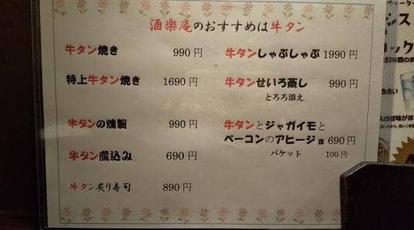 酒樂庵のおすすめは牛タン
牛タン焼き 990円
特上牛タン焼き 1690円
牛タンの燻製 990円
牛タン煮込み 690円
牛タン炙り寿司 890円
牛タンしゃぶしゃぶ 1990円
牛タンせいろ蒸し 990円
とろろ添え
牛タンとジャガイモと
ベーコンのアヒージョ 690円
バケット 100円